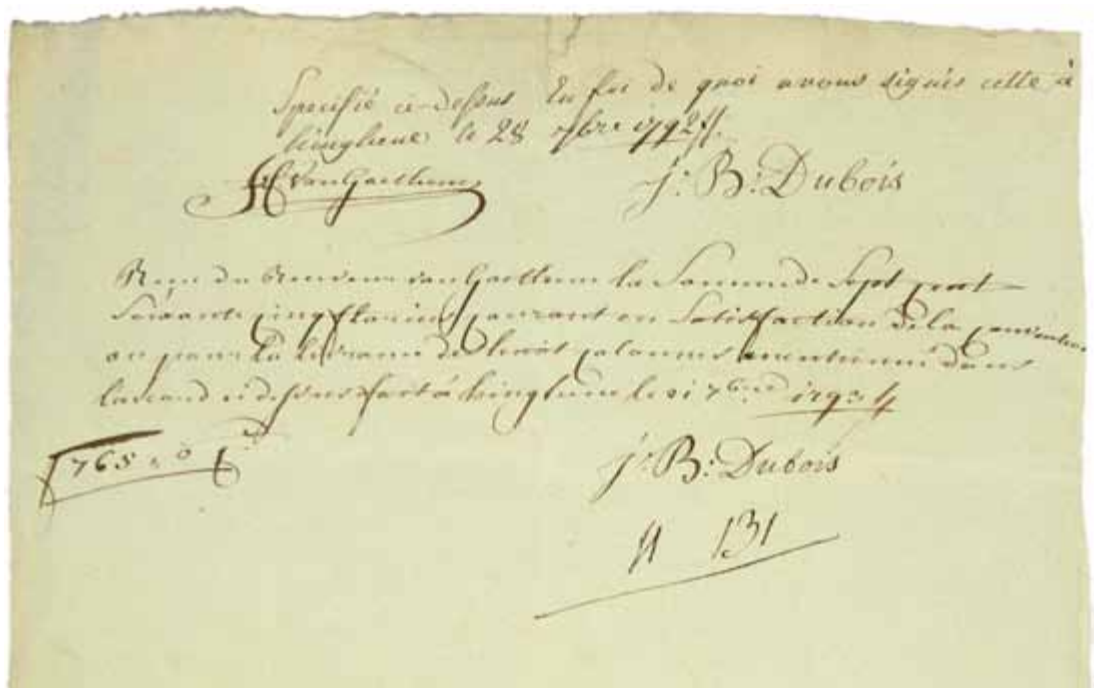 Specifié ci-dessus En foi de quoi avons signés cette à
hinghene le 28 7bre 1792 //.
van Gaethem
J: B: Dubois
Reçu du Receveur van Gaethem la Somme de Sept cent
Soixante cinq florins courant en Satisfaction de la convention
en pour la livrance de huit colonnes mentionné dans
ci dessus fait à hinghene le 21 7bre 1793 //
765 „ 0
J: B: Dubois
131